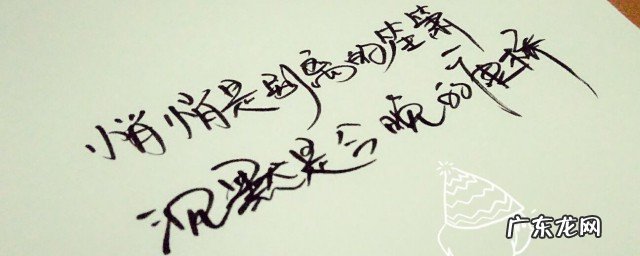 悄悄是别离的笙箫
沉默是今晚的康桥
广东龙网